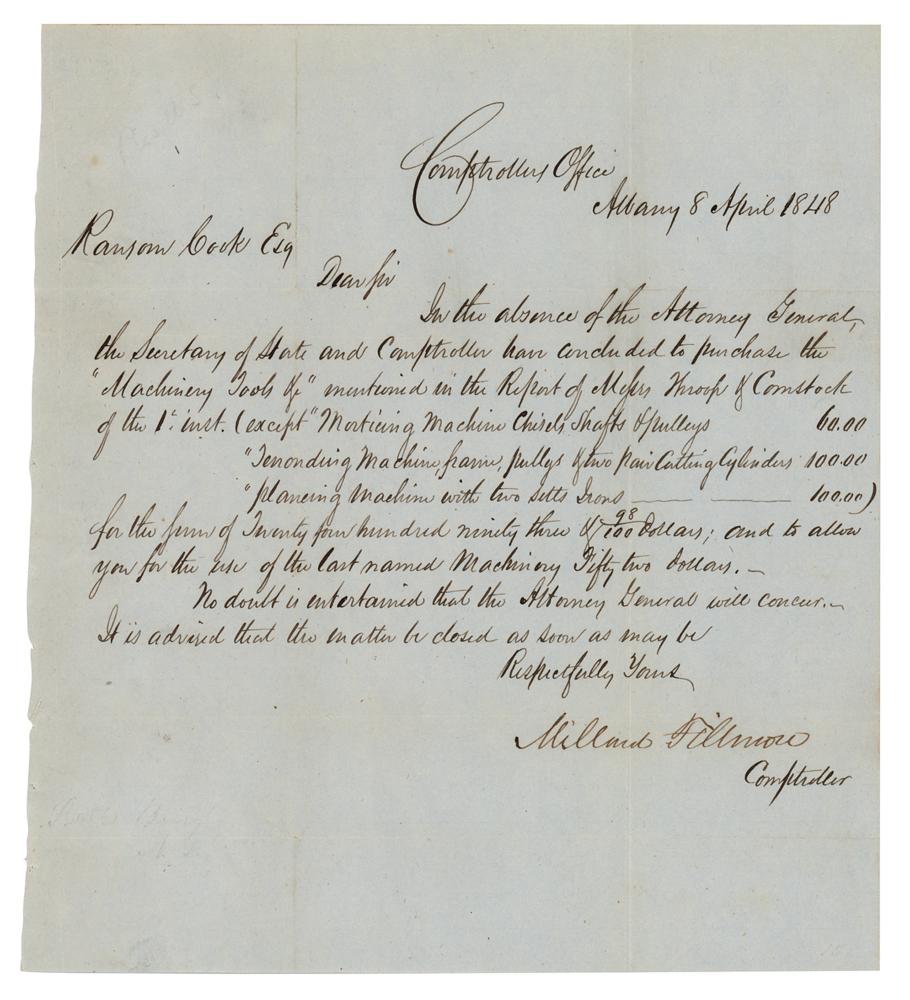 Comptrollers Office
Albany 8 April 1848
Ransom Cook Esq
Dear Sir
In the absence of the Attorney General,
the Secretary of State and Comptroller have concluded to purchase the
"Machinery Tools &c" mentioned in the Report of Messrs Throop & Comstock
of the 1st inst. (except "Morticing Machine Chisels, Shafts & pulleys 60.00
"Tenonding Machine, frame, pullys & two pair Cutting Cylinders 100.00
"planeing machine with two setts Irons — — 100.00)
for the sum of Twenty four hundred ninety three & 98/100 Dollars; and to allow
you for the use of the last named Machinery Fifty two Dollars. —
No doubt is entertained that the Attorney General will concur. —
It is advised that the matter be closed as soon as may be
Respectfully Yours
Millard Fillmore
Comptroller